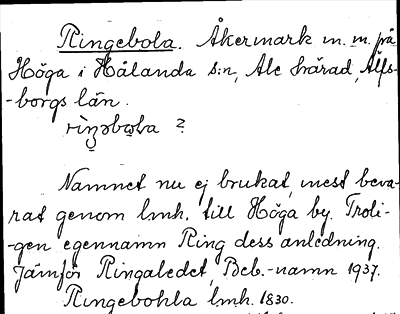 Ringebola. Åkermark m. m. på
Höga i Hålanda s:n, Ale härad, Älfs-
-borgs län.
?
Namnet nu ej brukat, mest beva-
rat genom lmh. till Höga by. Troli-
-gen egennamn Ring dess anledning.
Jämför Ringaledet, Beb.-namn 1937.
Ringebohla lmh. 1830.